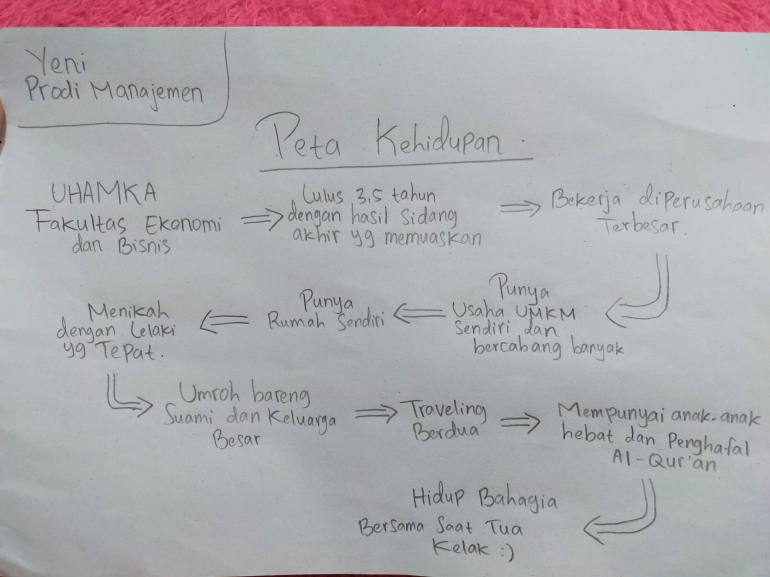 Yeni
Prodi Manajemen
Peta Kehidupan.
UHAMKA
Fakultas Ekonomi
dan Bisnis
Lulus 3,5 tahun
dengan hasil Sidang
akhir yg memuaskan
Bekerja diperusahaan
Terbesar.
Punya
Usaha UMKM
Sendiri dan
bercabang banyak
Punya
Rumah Sendiri
Menikah
dengan Lelaki
yg Tepat.
Umroh bareng
Suami dan Keluarga
Besar
Traveling
Berdua
Mempunyai anak-anak
hebat dan Penghafal
Al-Qur'an
Hidup Bahagia
Bersama Saat Tua
Kelak :)